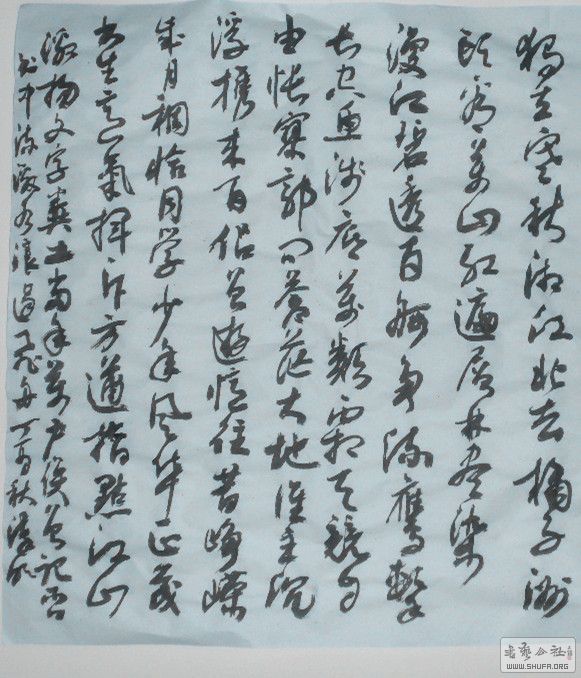 独立寒秋湘江北去橘子洲
头看萬山红遍层林尽染
漫江碧透百舸争流鹰擊
长空鱼浅底萬類霜天競自
由怅寥郭问苍茫大地谁主沉
浮携来百侣曾遊忆往昔峥嵘
岁月稠恰同学少年风华正茂
书生意氣挥斥方遒指點江山
激扬文字粪土当年萬户侯曾记否
到中流激水浪遏飞舟丁亥秋
WWW.SHUFA.ORG